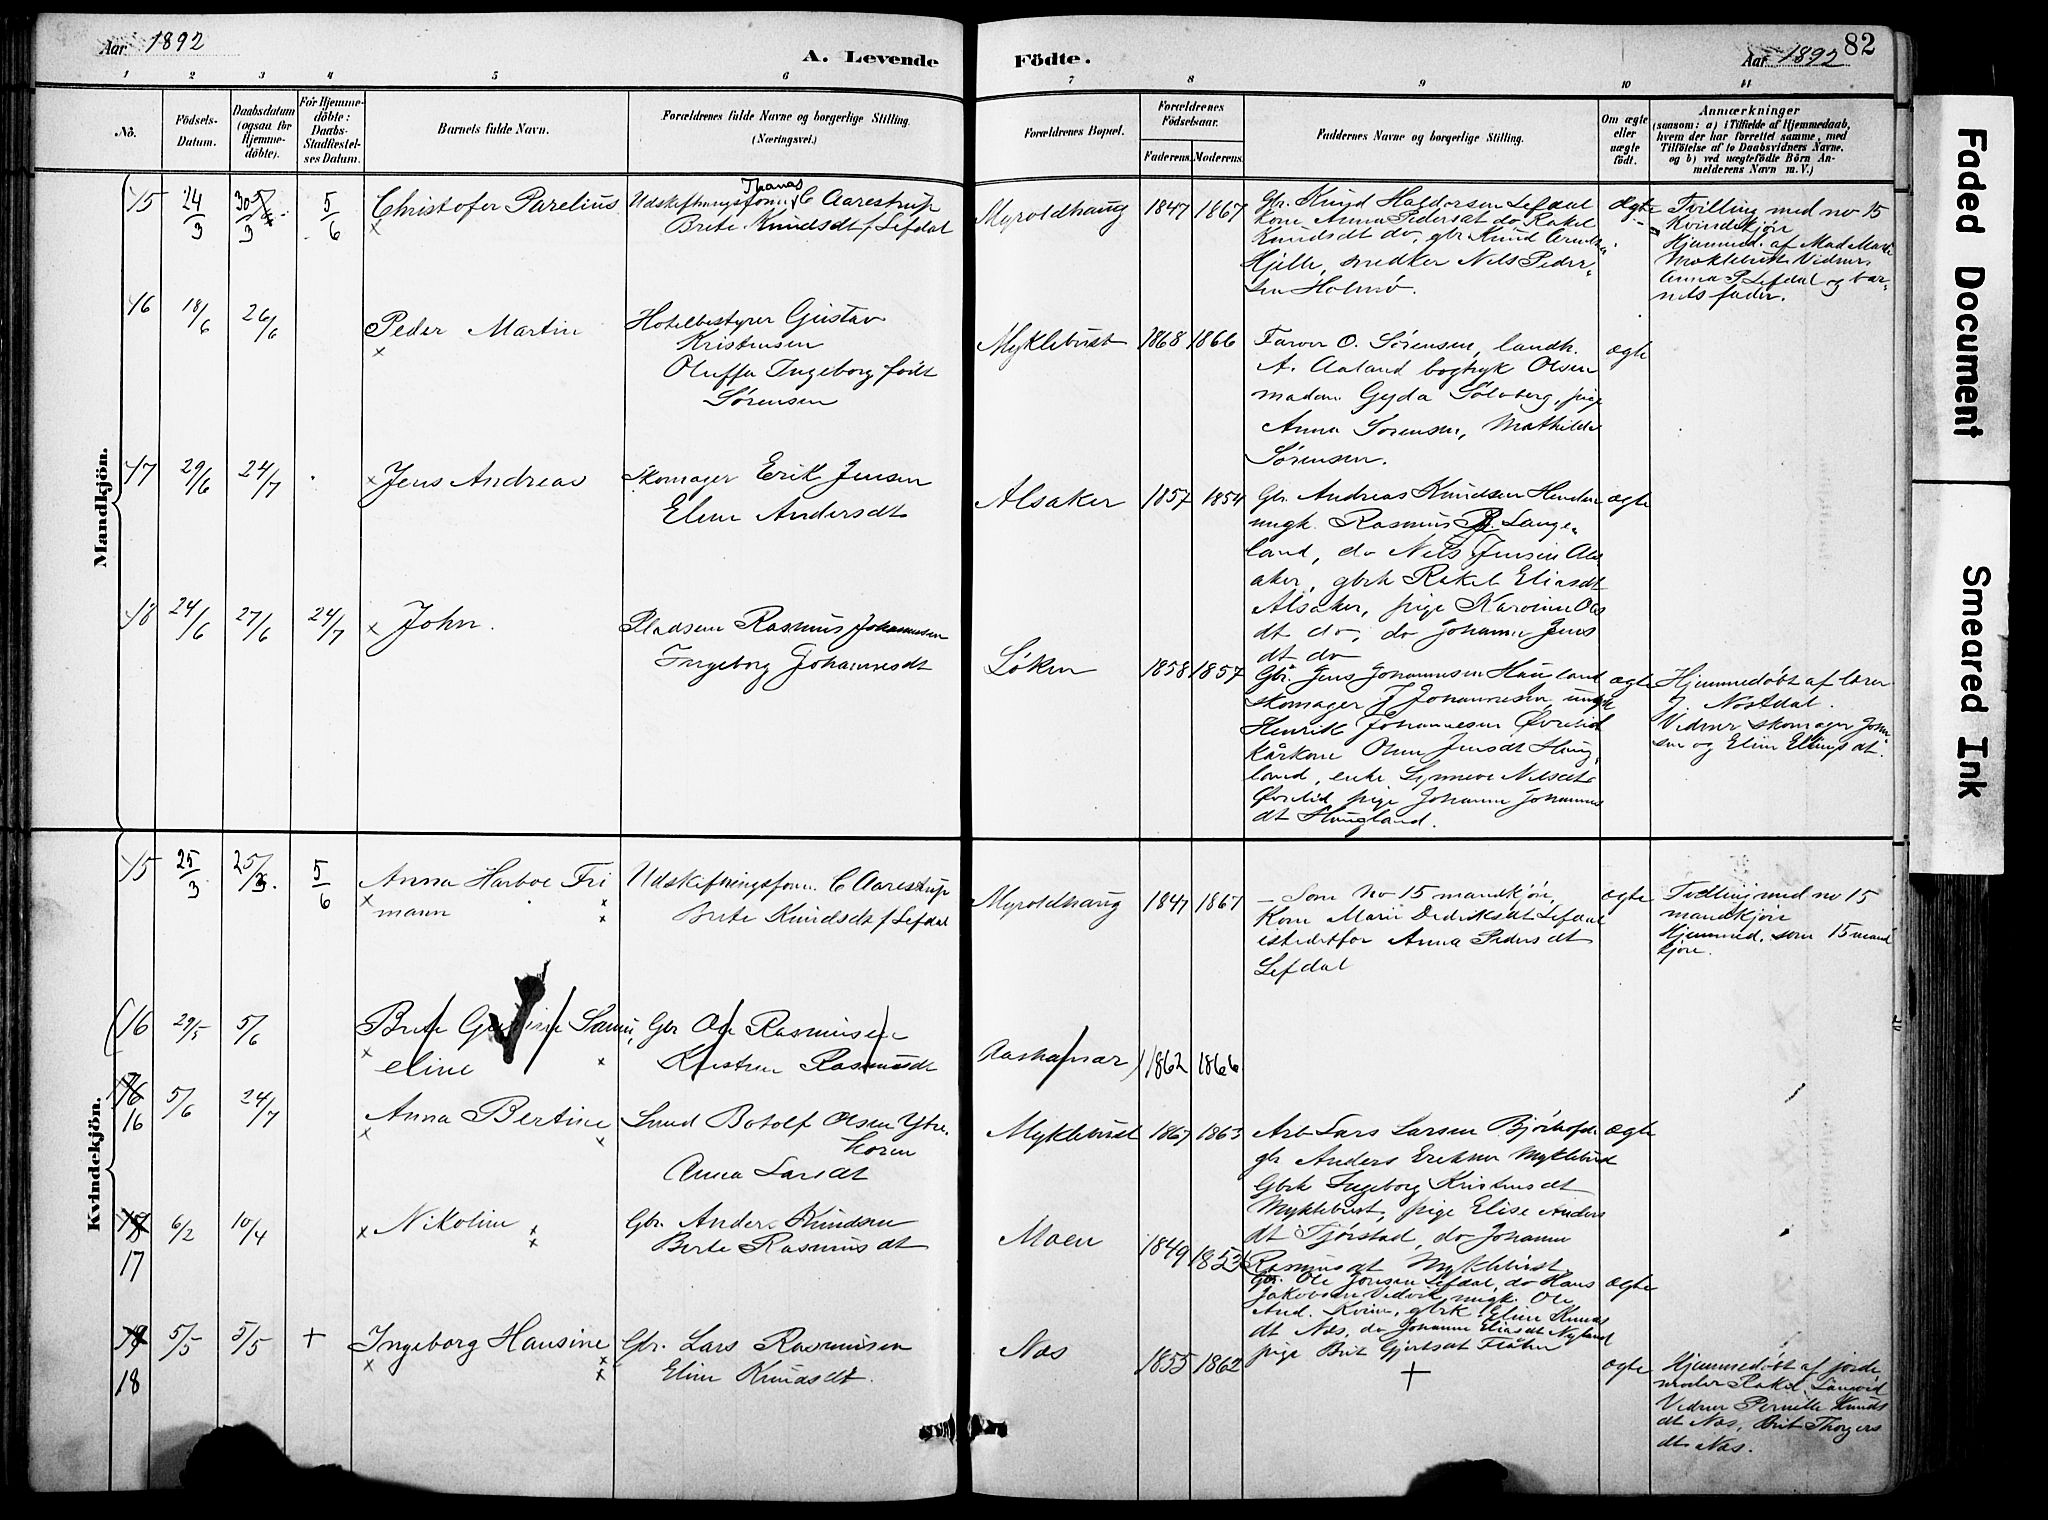 Aar 1892
A. Levende
Födte.
Aar 1892
82
1
2
3
4
5
6
7
8
9
10
11
No.
Födsels-
Datum.
Daabsdatum
(ogsaa for
Hjemme-
döbte).
For Hjemme-
döbte:
Daabs-
Stadfæstel-
ses Datum.
Barnets fulde Navn.
Forældrenes fulde Navne og borgerlige Stilling.
(Næringsvei.)
Forældrenes Bopæl.
Forældrenes
Födselsaar.
Faderens.
Moderens.
Faddernes Navne og borgerlige Stilling.
Om ægte
eller
uægte
födt.
Anmærkninger
(saasom: a) i Tilfælde af Hjemmedaab,
hvem der har forrettet samme, med
Tilföielse af to Daabsvidners Navne.
og b) ved uægtefödte Börn An-
melderens Navn m. V.)
Mandkjön.
15 24/3 30/3 5/6 Christofer Parelius
Udskiftningsform. Thomas C Aarestrup
Brite Knudsdt f Lefdal
Myroldhaug 1847 1867
Gbr. Knud Haldorsen Lefdal
Kone Anna Pedersdt do, Rakel
Knudsdt do, gbr Knud
Hjelle, snedker Nels Peder-
sen Holmø.
ægte
Tvilling med no 15
Kvindekjøn
Hjemmed. af Mad. Marie
Myklebust. Vidner
Anna P. Lefdal og bar-
nets fader.
16 18/6 26/6 Peder Martin
Hotelbestyrer Gustav
Kristensen
Oluffa Ingeborg født
Sørensen
Myklebust 1868 1866
Farver O. Sørensen, landh.
A. Aaland bogtryk Olsen
madam Gyda Sølvberg, pige
Anna Sørensen, Mathilde
Sørensen.
ægte
17 29/6 24/7 Jens Andreas
Skomager Erik Jensen
Eline Andersdt
Alsaker 1857 1854
Gbr. Andreas Knudsen Henden
ungk. Rasmus R. Lange-
land, do Nils Jensen Als-
aker, gbrk Rakel Eliasdt
Alsaker, pige Karoline Ols
dt do, do Johanne Jens
dt do
ægte
18 24/6 27/6 24/7 John.
Pladsem Rasmus Johannesen
Ingeborg Johannesdt
Løken 1858 1857
Gbr. Jens Johannesen Haugland
skomager J Johannesen, ungk
Henrik Johannesen Øvrelid
kårkone Oline Jensdt Haug-
land, enke Synneve Nilsdt
Øvrelid, pige Johanne Johannes
dt Haugland.
ægte
Hjemmedøbt af lærer
J. Nostdal.
Vidner skomager Johan
sen og Eline Ellingsdt.
Kvindekjön.
15 25/3 25/3 5/6 Anna Harboe Fri
mann
Udskiftningsform. C Aarestrup
Brite Knudsdt f Lefdal
Myroldhaug 1847 1867
– Som no 15 mandkjøn,
Kone Marie Didriksdt Lefdal
istedetfor Anna Pedersdt
Lefdal
ægte
Tvilling med no 15
mandkjøn
Hjemmed. som 15 mand
kjøn.
(16 29/5 5/6 Brite Samu
eline
Gbr Ole Rasmusen
Kristine Rasmusdt
Aashamar) 1862 1866
16 5/6 24/7 Anna Bertine
Smed Botolf Olsen Ytre-
horn
Anna Larsdt
Myklebust 1867 1863
Arb Lars Larsen Bjørhofde
gbr Anders Eriksen Myklebust
Gbrk Ingeborg Kristensdt
Myklebust, pige Elise Anders
dt Tjørstad, do Johanne
Rasmusdt Myklebust
ægte
17 6/2 10/4 Nikoline
Gbr. Anders Knudsen
Berte Rasmusdt
Moen 1849 1853
Gbr. Ole Jonsen Lefdal, do Hans
Jakobsen Vedvik, ungk. Ole
And. Kvien, gbrk Eline Knuds
dt Næs, do Johanne Eliasdt Nyland
pige Brit Gjertsdt Flåten
ægte
18 5/5 5/5 + Ingeborg Hansine
Gbr. Lars Rasmusen
Eline Knudsdt.
Næs 1855 1862
+
ægte
Hjemmedøbt af jorde
moder Rakel Langvid
Vidner Pernille Knuds
dt Næs, Brit Thorgers
dt Næs.
Faded Document
Smeared Ink